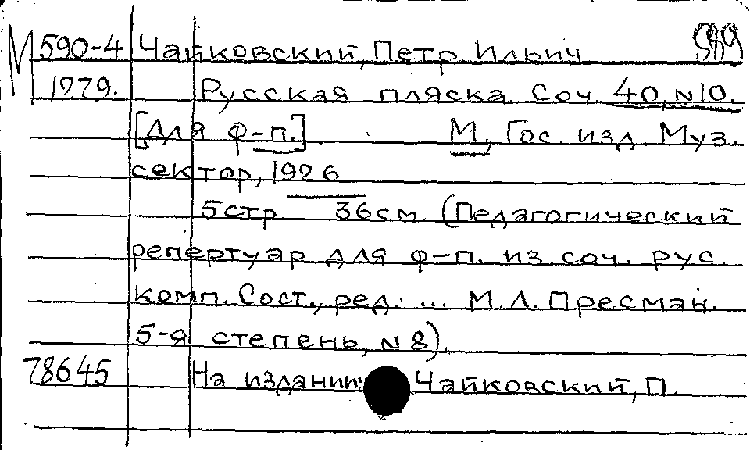 М 590-4 Чайковский, Петр Ильич
1779. Русская пляска Соч 40, №10.
[Для ф-п.] М., Гос. изд Муз.
сектор, 1926
5стр 36см (Педагогический
репертуар для ф-п. из соч. рус.
комп. Сост., ред. ... М.Л. Пресман.
5-я степень, №8).
78645 На издании: Чайковский, П.